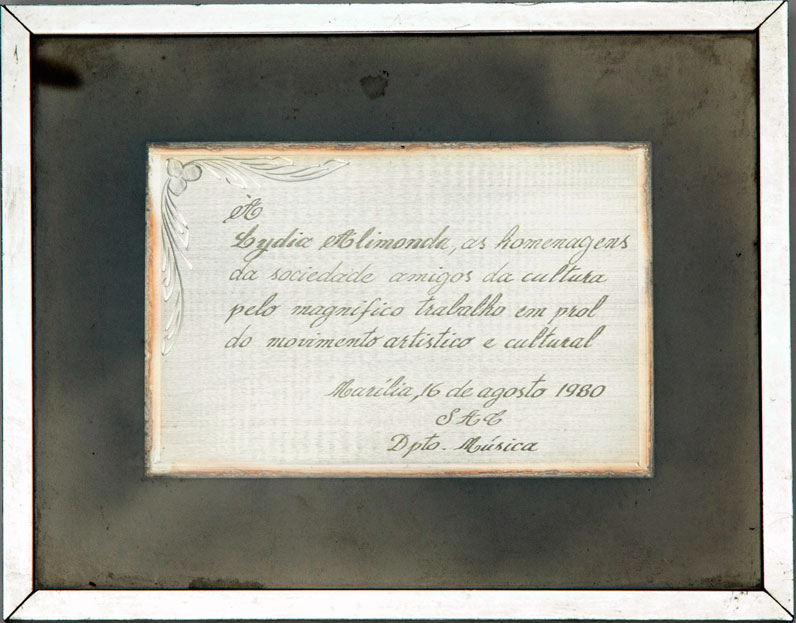 À
Lydia Alimonda, as homenagens
da sociedade amigos da cultura
pelo magnifico trabalho em prol
do movimento artistico e cultural
Marília, 16 de agosto 1980
SAC
Dpto. Música